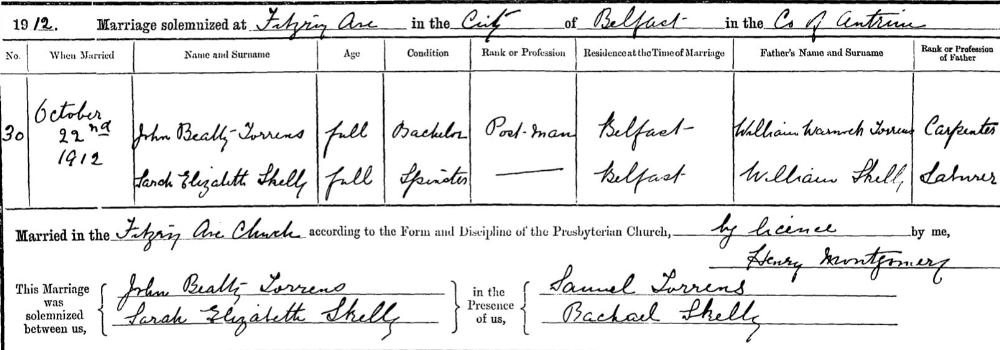 1912. Marriage solemnized at Fitzroy Ave in the City of Belfast in the Co of Antrim
No. When Married Name and Surname Age Condition Rank or Profession Residence at the Time of Marriage Father's Name and Surname Rank or Profession of Father
30 October 22nd 1912 John Beatty Torrens full Bachelor Post-man Belfast William Warnock Torrens Carpenter
Sarah Elizabeth Skelly full Spinster Belfast William Skelly Labourer
Married in the Fitzroy Ave Church according to the Form and Discipline of the Presbyterian Church, by licence by me,
Henry Montgomery
This Marriage was solemnized between us, John Beatty Torrens in the Presence of us, Samuel Torrens
Sarah Elizabeth Skelly Rachael Skelly